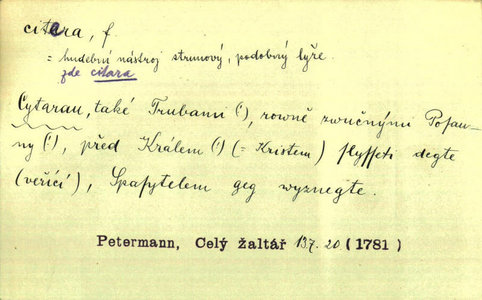 citera, f.
= hudební nástroj strunový, podobný lyře.
zde citara
Cytarau, také Trubami (!), rowně zwučnými Posau-
ny (!), před Králem (!) (= Kristem) slyſſeti degte
(veřící), Spaſytelem geg wyznegte.
Petermann, Celý žaltář 137. 20. (1781)